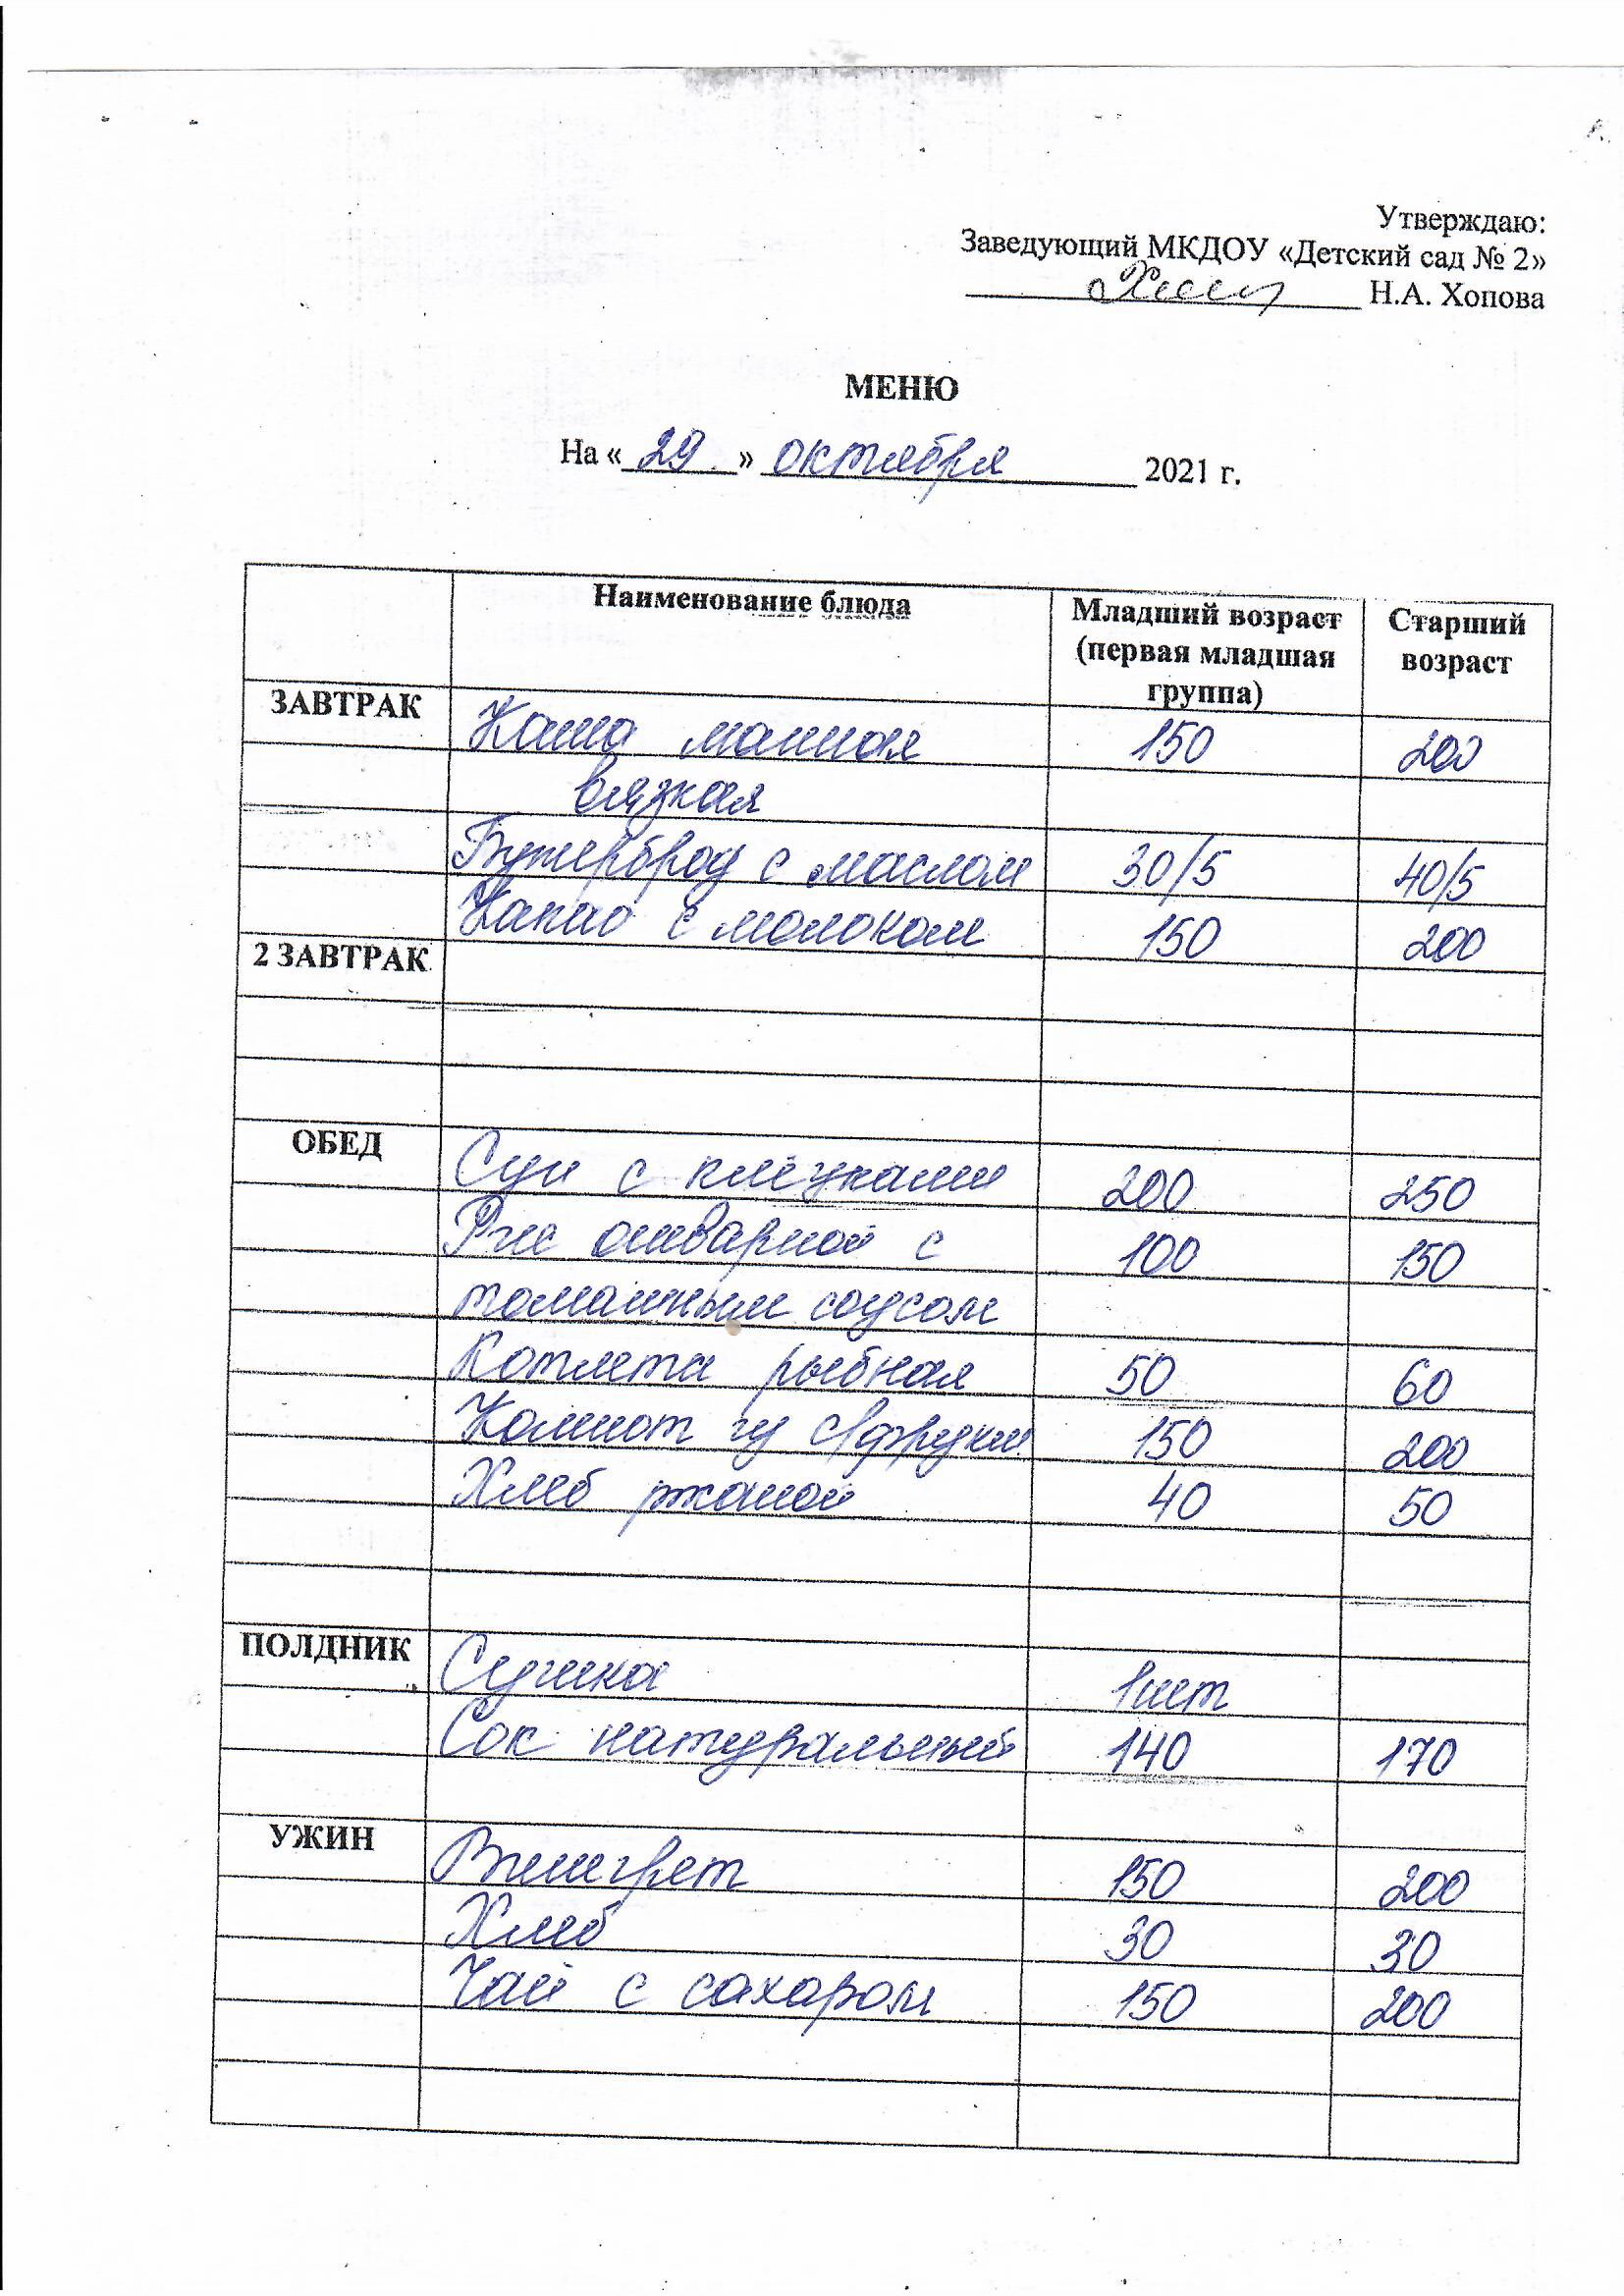 Утверждаю:
Заведующий МКДОУ «Детский сад № 2»
Н.А. Хопова
МЕНЮ
На « 29 » октября 2021 г.
Наименование блюда Младший возраст (первая младшая группа) Старший возраст
ЗАВТРАК Каша манная 150 200
вязкая
Бутерброд с маслом 30/5 40/5
Какао с молоком 150 200
2 ЗАВТРАК
ОБЕД Суп с клёцками 200 250
Рис отварной с 100 150
томатным соусом
Котлета рыбная 50 60
Компот из с/фрукт 150 200
Хлеб ржаной 40 50
ПОЛДНИК Сушка 1шт
Сок натуральный 140 170
УЖИН Винегрет 150 200
Хлеб 30 30
Чай с сахаром 150 200